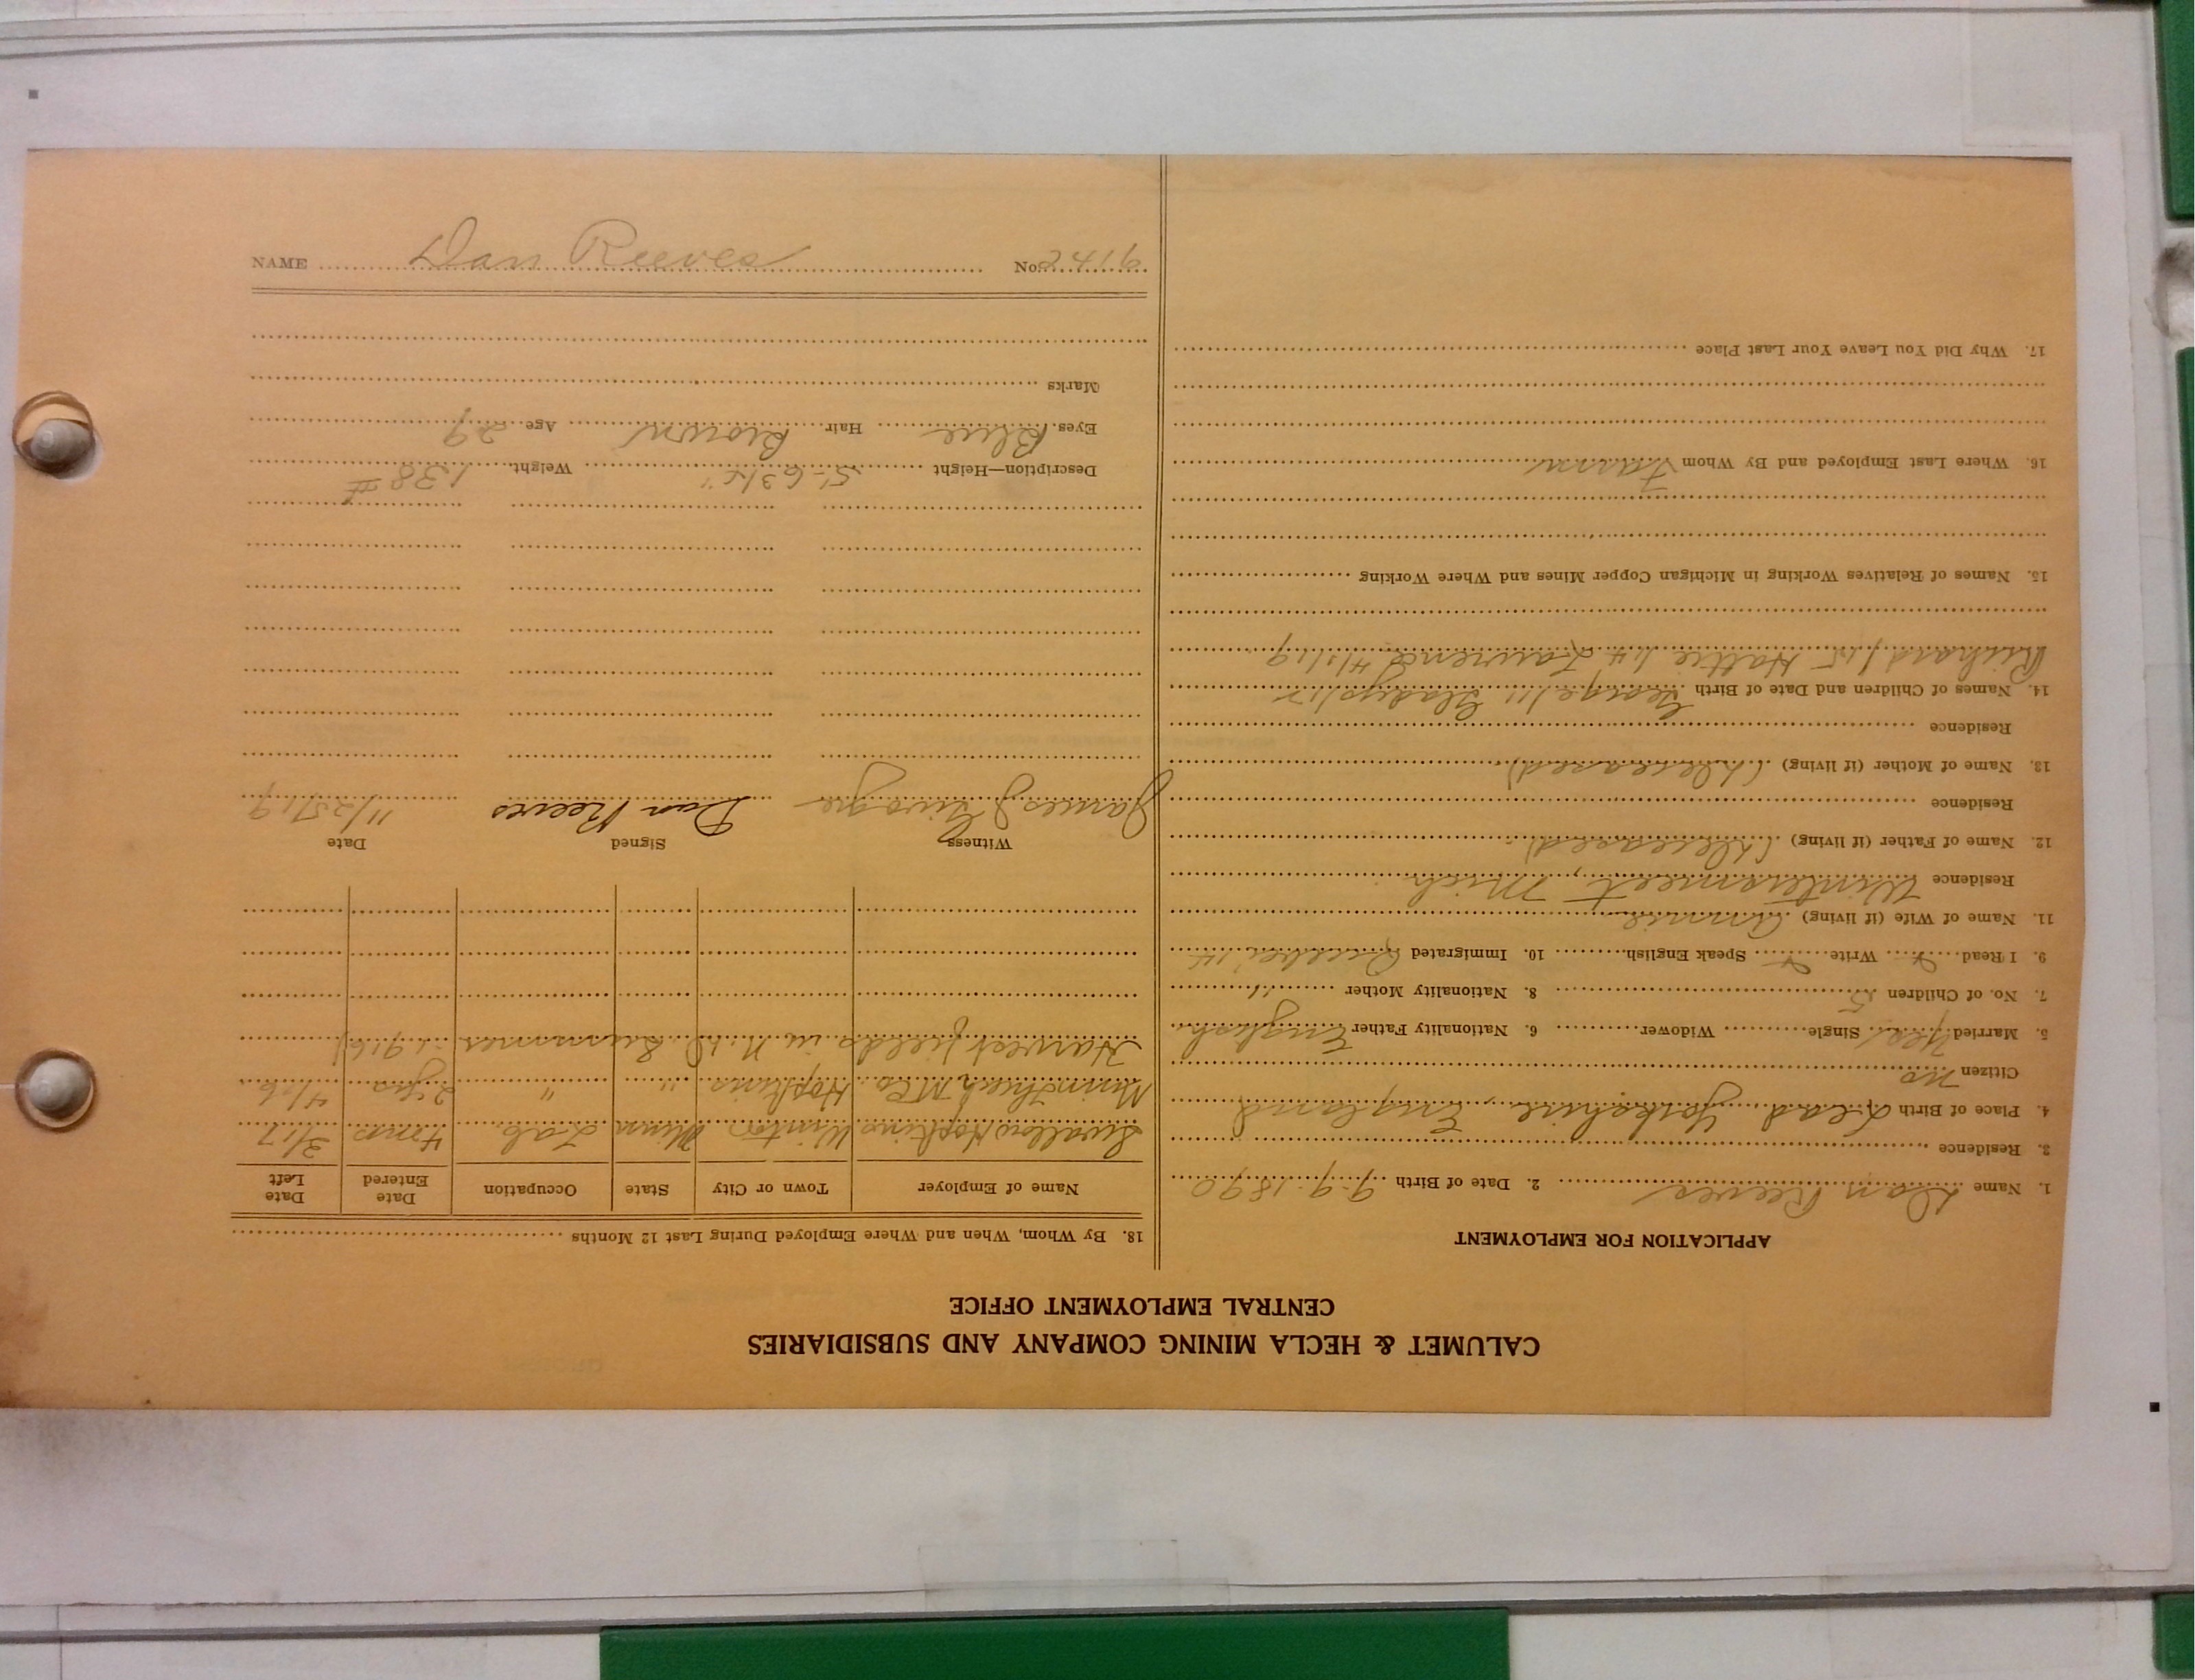 CALUMET & HECLA MINING COMPANY AND SUBSIDIARIES
CENTRAL EMPLOYMENT OFFICE
APPLICATION FOR EMPLOYMENT
1. Name Dan Reeves 2. Date of Birth 9-9-1890
3. Residence
4. Place of Birth Lead Yorkshire, England
Citizen no
5. Married Yes Single Widower 6. Nationality Father English
7. No. of Children 5 8. Nationality Mother "
9. I Read Write Speak English 10. Immigrated Quebec 14
11. Name of Wife (if living) Annie
Residence Mich
12. Name of Father (if living) (Deceased)
Residence
13. Name of Mother (if living) (Deceased)
Residence
14. Names of Children and Date of Birth George/11 Gladys/12
Richard/15 Hattie/14 Lawrence 4/2/19
15. Names of Relatives Working in Michigan Copper Mines and Where Working
16. Where Last Employed and By Whom Farm
17. Why Did You Leave Your Last Place
18. By Whom, When and Where Employed During Last 12 Months
Name of Employer Town or City State Occupation Date Entered Date Left
Swallow Hopkins Winton Minn Lab 4 mos 3/17
Minn Thresh M Co. Hopkins " " 2 yrs 4/16
Harvest fields in N.D. Summer 1916
Witness Signed Date
James Dan Reeves 11/25/19
Description—Height 5'-6 3/4" Weight 138 #
Eyes Blue Hair Brown Age 29
Marks
NAME Dan Reeves No. 2419